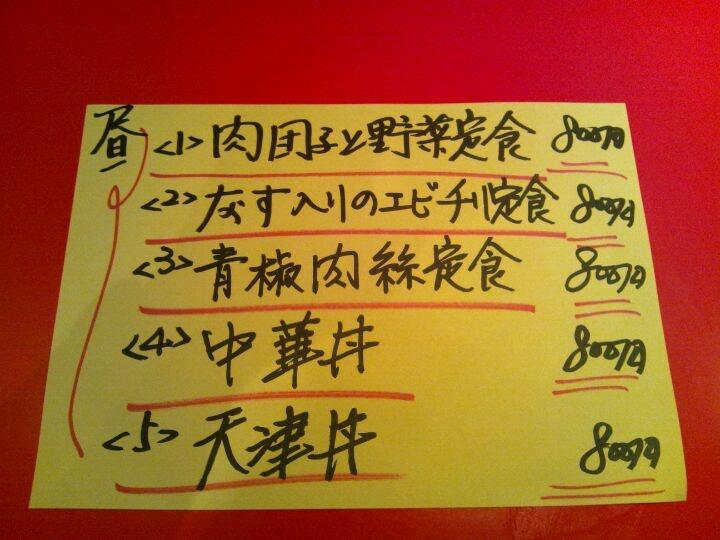 昼
<1> 肉団子と野菜定食 800円
<2> なす入りのエビチリ定食 800円
<3> 青椒肉絲定食 800円
<4> 中華丼 800円
<5> 天津丼 800円